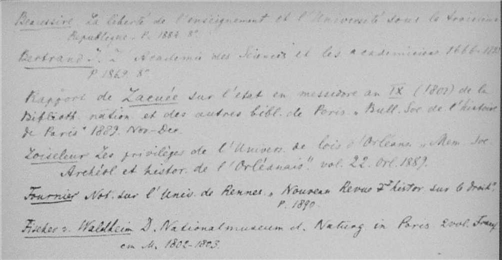 Beaussire, La liberté de l'enseignement et l'Université sous la troisième
République. P. 1884. 8°
Bertrand J. L'Académie des Sciences et les académiciens 1666-1793
P 1869. 8°
Rapport de Lacuée sur l'état en messidor an IX (1801) de la
Biblioth. nation. et des autres bibl. de Paris. „Bull. Soc. de l'histoire
de Paris" 1889. Nov-Dec.
Loiseleur Les privilèges de l'Univers. de lois d'Orléans „Mem. Soc.
Archéol et histor. de l'Orléanais". vol. 22. Orl. 1889.
Fournier Not. sur l'Univ. de Rennes. „Nouveau Revue histor sur le Droit".
P. 1890.
Fischer v. Waldheim D. Nationalmuseum d. Naturg in Paris 2 vol.
am M. 1802-1803.